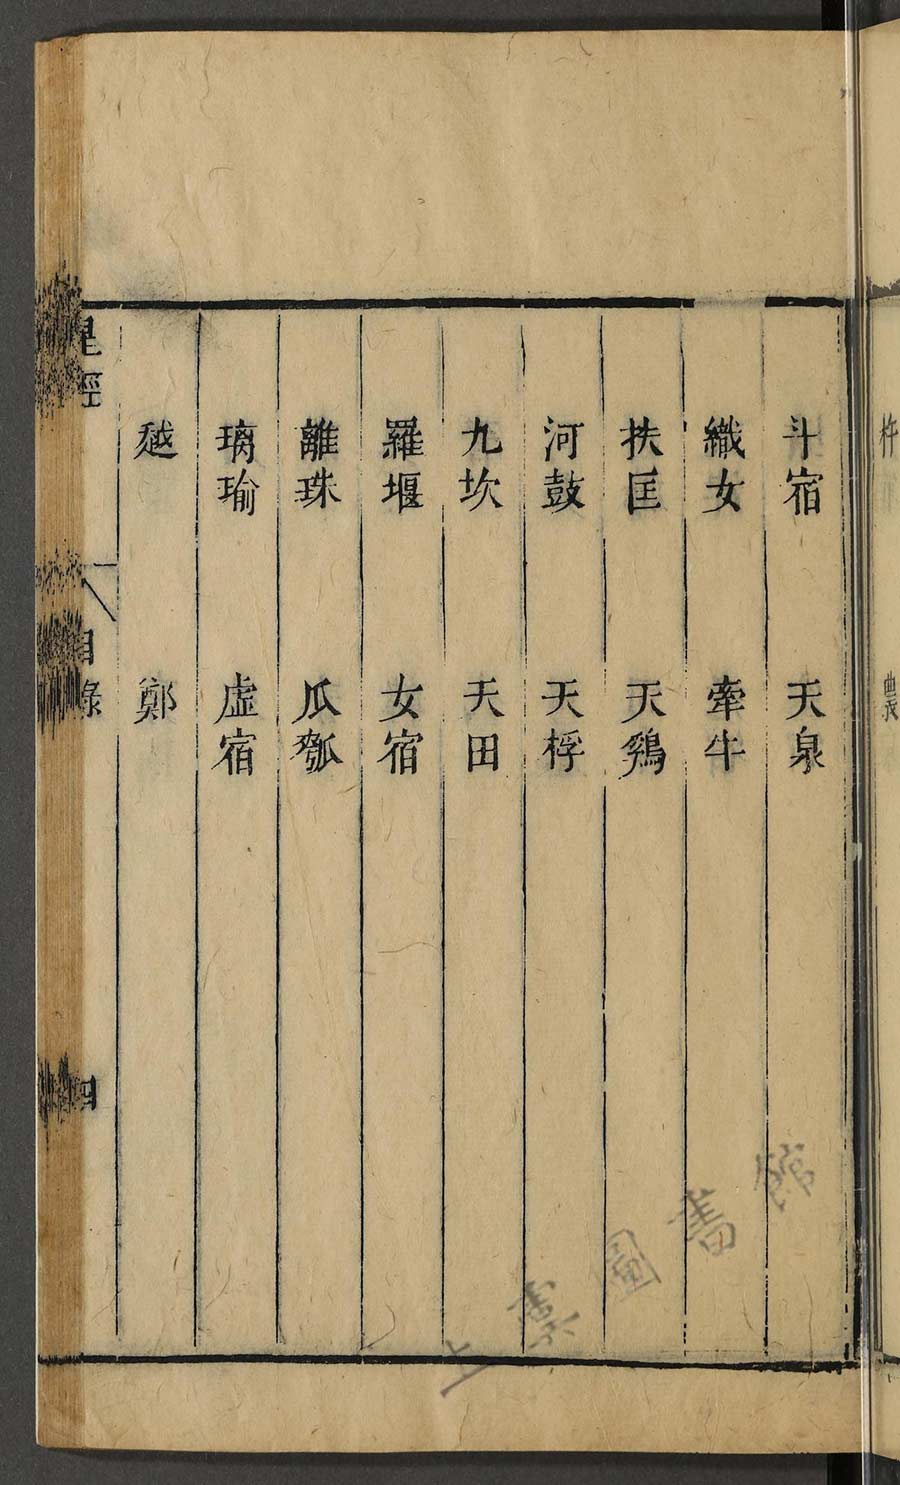 斗宿 天泉
織女 牽牛
扶匡 天鷄
河鼓 天桴
九坎 天田
羅堰 女宿
離珠 瓜瓠
璃瑜 虛宿
越 鄭
星經 目錄 四
上虞圖書館
杵